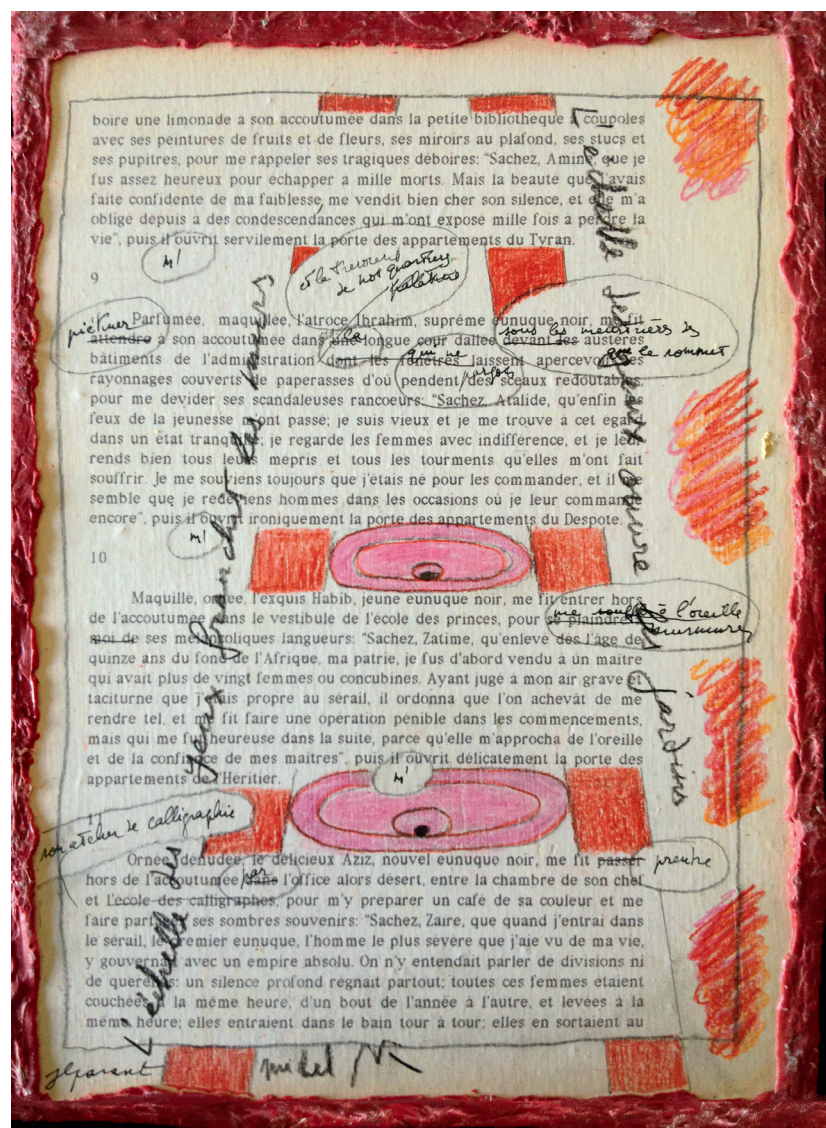 boire une limonade a son accoutumée dans la petite bibliothèque à coupoles
avec ses peintures de fruits et de fleurs, ses miroirs au plafond, ses stucs et
ses pupitres, pour me rappeler ses tragiques déboires: "Sachez, Amine, que je
fus assez heureux pour echapper a mille morts. Mais la beauté que j'avais
faite confidente de ma faiblesse, me vendit bien cher son silence, et elle m'a
oblige depuis a des condescendances qui m'ont expose mille fois a perdre la
vie", puis il ouvrit servilement la porte des appartements du Tyran.
m'
9
et le
de nos quartiers
piétiner
Parfumée, maquillee, l'atroce Ibrahim, suprême eunuque noir, me fit
sous les meurtrières des
attendre a son accoutumée dans une longue cour dallee devant les austères
la
qui ne
que le sommet
bâtiments de l'administration dont les fenêtres laissent apercevoir des
rayonnages couverts de paperasses d'où pendent des sceaux redoutables
parfois
pour me devider ses scandaleuses rancoeurs: "Sachez, Atalide, qu'enfin les
feux de la jeunesse m'ont passe; je suis vieux et je me trouve à cet egard
dans un état tranquille; je regarde les femmes avec indifférence, et je leur
rends bien tous leurs mepris et tous les tourments qu'elles m'ont fait
souffrir. Je me souviens toujours que j'étais né pour les commander, et il me
semble que je redeviens hommes dans les occasions où je leur commande
encore", puis il ouvrit ironiquement la porte des appartements du Despote.
m'
10
Maquille, ornée, l'exquis Habib, jeune eunuque noir, me fit entrer hors
me souffler à l'oreille
de l'accoutumée dans le vestibule de l'école des princes, pour se plaindre à
murmurer
moi de ses mélancoliques langueurs: "Sachez, Zatime, qu'enlevé dès l'âge de
quinze ans du fond de l'Afrique, ma patrie, je fus d'abord vendu à un maitre
qui avait plus de vingt femmes ou concubines. Ayant jugé à mon air grave et
taciturne que j'étais propre au sérail, il ordonna que l'on achevât de me
rendre tel, et me fit faire une opération pénible dans les commencements,
mais qui me fut heureuse dans la suite, parce qu'elle m'approcha de l'oreille
et de la confiance de mes maitres", puis il ouvrit délicatement la porte des
appartements de l'Heritier.
m'
son atelier de calligraphie
11
Ornée, dénudée, le délicieux Aziz, nouvel eunuque noir, me fit passer
prendre
hors de l'accoutumée dans l'office alors désert, entre la chambre de son chef
par
et l'école des calligraphes, pour m'y preparer un café de sa couleur et me
faire part de ses sombres souvenirs: "Sachez, Zaire, que quand j'entrai dans
le sérail, le premier eunuque, l'homme le plus sévère que j'aie vu de ma vie,
y gouvernait avec un empire absolu. On n'y entendait parler de divisions ni
de querelles: un silence profond régnait partout; toutes ces femmes étaient
couchées à la même heure, d'un bout de l'année à l'autre, et levées à la
même heure; elles entraient dans le bain tour à tour; elles en sortaient au
L'échelle des yeux franchit les murs
L'échelle des yeux ouvre les jardins
jlparant
michel